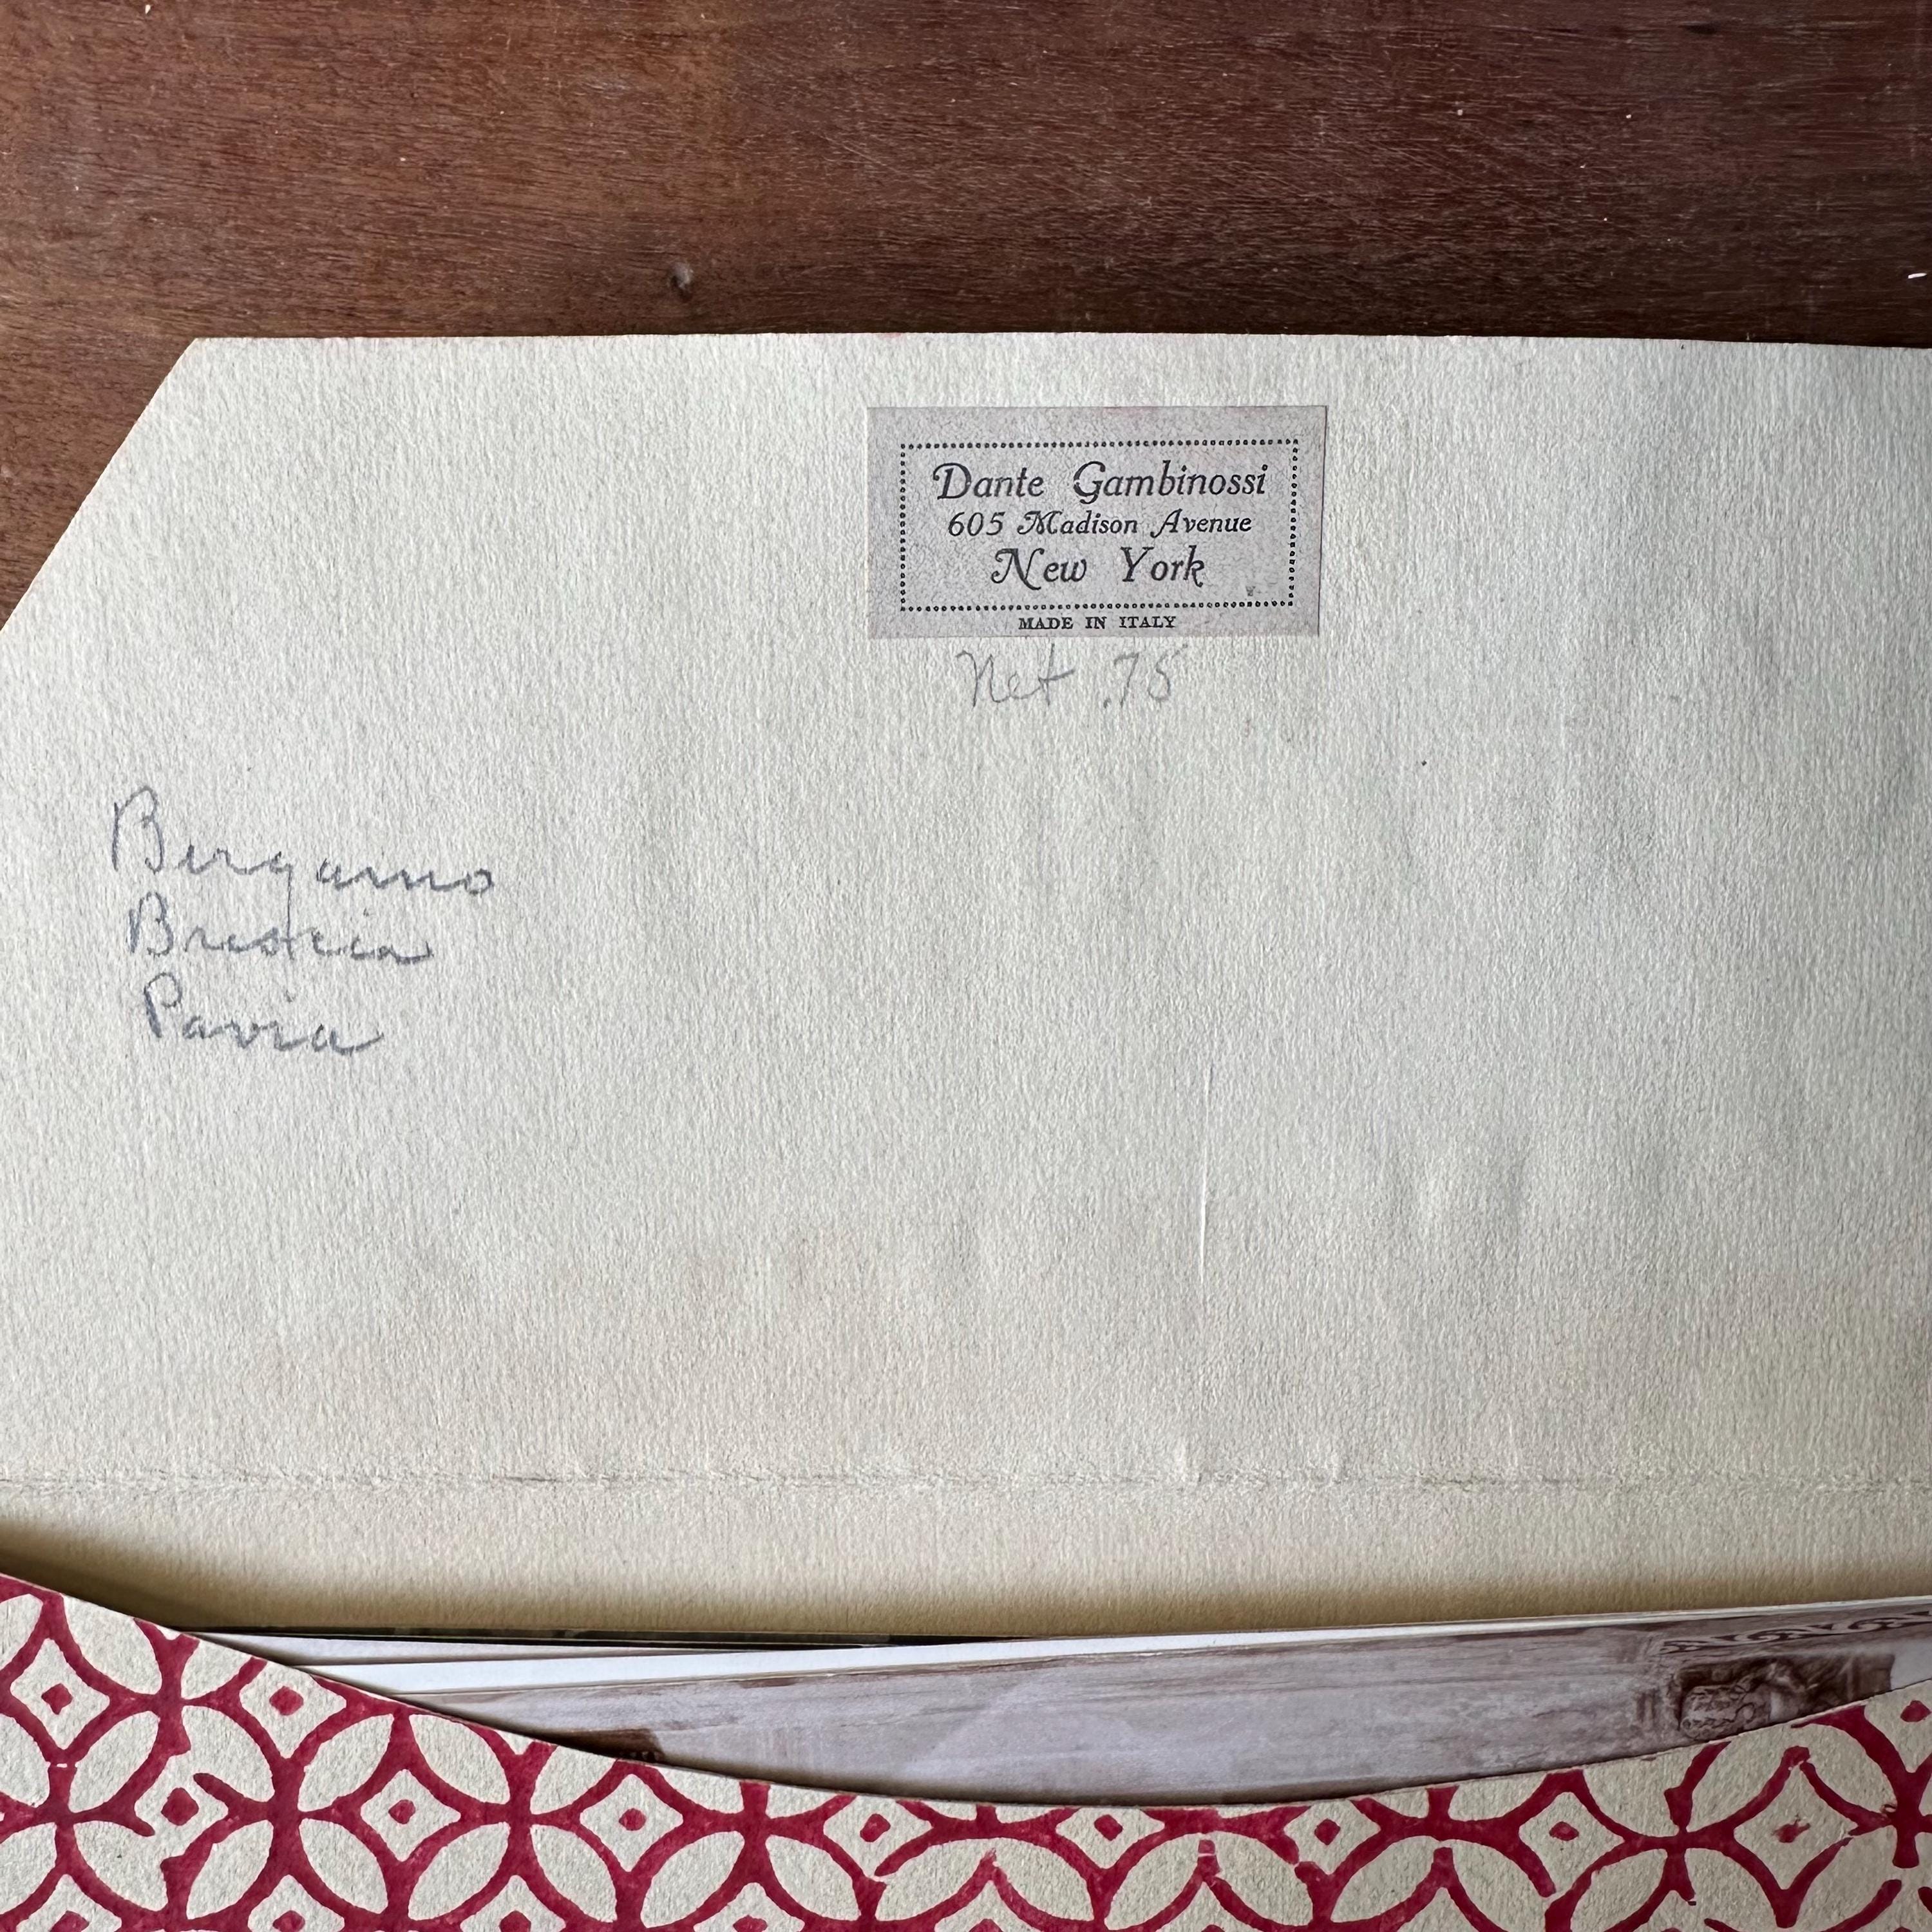 Dante Gambinossi
605 Madison Avenue
New York
MADE IN ITALY
Net .75
Bergamo
Brescia
Pavia